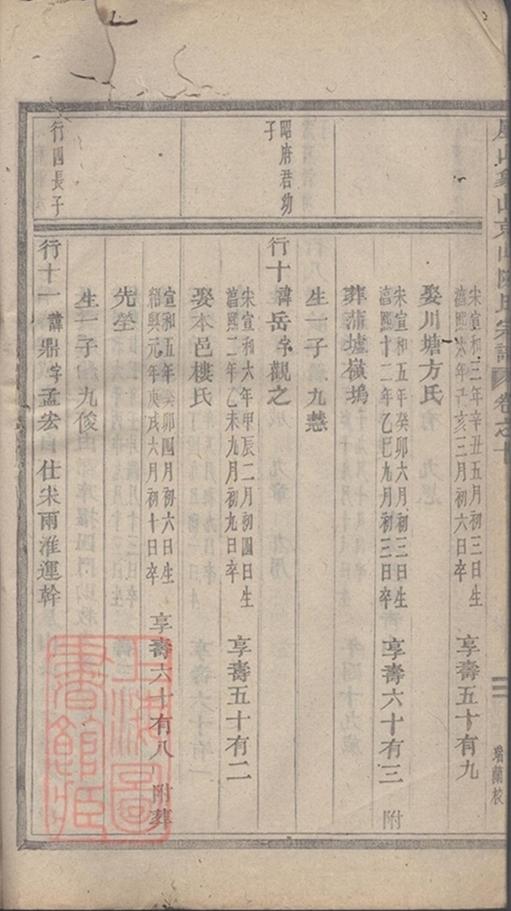 宗譜 卷之十
三
瑞蘭校
宋宣和三年辛丑五月初三日生
淳熙六年己亥三月初六日卒
享壽五十有九
娶川塘方氏
宋宣和五年癸卯六月初三日生
淳熙十二年乙巳九月初三日卒
享壽六十有三
附
葬蒲墟嶽塢
生一子 九憖
昭府君幼子
行十 諱岳字觀之
宋宣和六年甲辰二月初四日生
淳熙二年乙未九月初九日卒
享壽五十有二
娶本邑樓氏
宣和五年癸卯四月初六日生
紹興元年庚戌六月初十日卒
享壽六十有八
附葬
先塋
生一子 九俊
行四長子
行十一 諱鼎字孟宏 仕宋兩淮運幹
上海圖書館